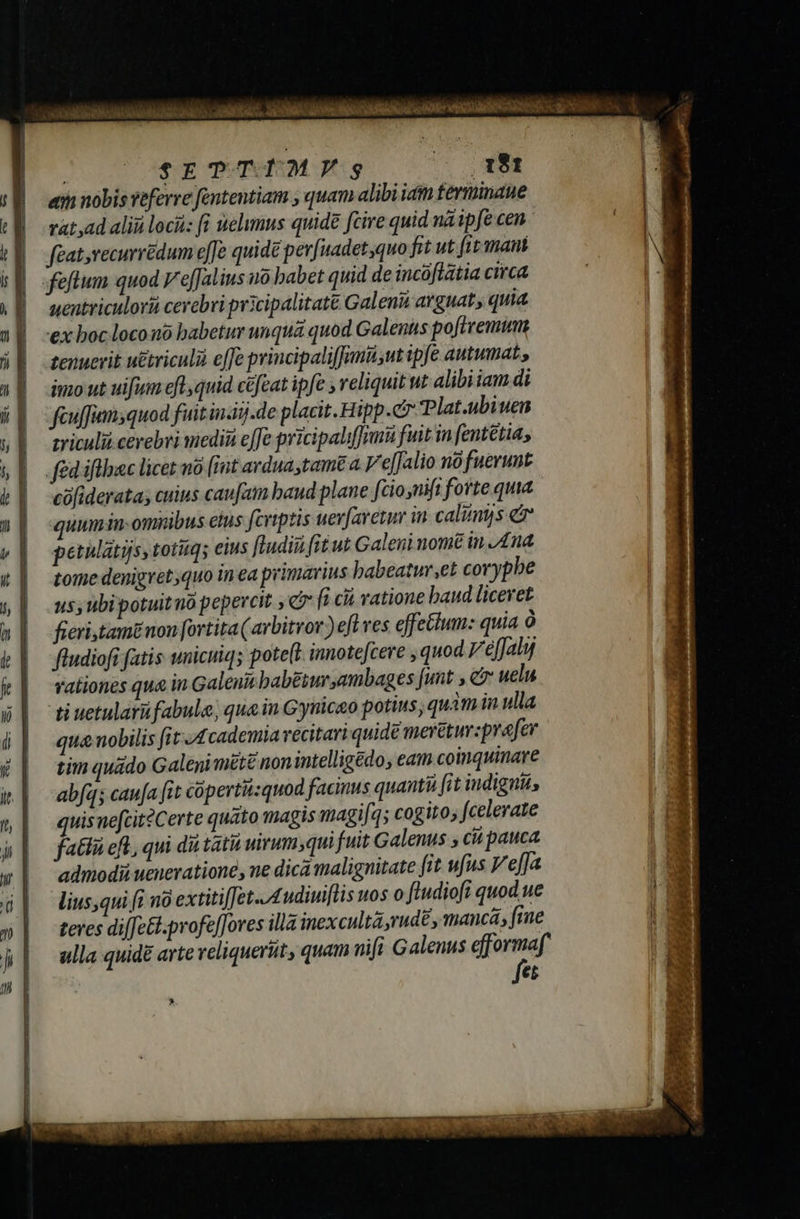 SEPTIMVS 181
am nobis referre ſententiam, quam alibi iam terminaue
rat, ad aliũ locũ: ſi uelimus quidẽ ſcire quid nã ipſe cen
ſeat, recurrẽdum eſſe quidẽ perſuadet, quo fit ut ſit mani
feſtum quod Veſſalius nõ habet quid de incõſtãtia circa
uentriculorũ cerebri prĩcipalitatẽ Galenũ arguat, quia
ex hoc loco nõ habetur unquã quod Galenus poſtremum
tenuerit uẽtriculũ eſſe principaliſſimũ, ut ipſe autumat,
imo ut uiſum eſt, quid cẽſeat ipſe, reliquit ut alibi iam di
ſcuſſum, quod fuit in .ij. de placit. Hipp. & Plat. ubi uen
triculũ cerebri mediũ eſſe prĩcipaliſſimũ fuit in ſentẽtia,
ſed iſthæc licet nõ ſint ardua, tamẽ a Veſſalio nõ fuerunt
cõſiderata, cuius cauſam haud plane ſcio, niſi forte quia
quum in omnibus eius ſcriptis uerſaretur in calũnijs &
petulãtijs, totiũq; eius ſtudiũ ſit ut Galeni nomẽ in Ana
tome denigret, quo in ea primarius habeatur, et coryphe
us, ubi potuit nõ pepercit, & ſi cũ ratione haud liceret
fieri, tamẽ non ſortita (arbitror) eſt res effectum: quia ô
ſtudioſi ſatis unicuiq; poteſt innoteſcere, quod Veſſalij
rationes quæ in Galenũ habẽtur, ambages ſunt, & uelu
ti uetularũ fabulæ, quæ in Gyniceo potius, quàm in ulla
quæ nobilis ſit Academia recitari quidẽ merẽtur: præſer
tim quãdo Galeni mẽtẽ non intelligẽdo, eam coinquinare
abſq; cauſa ſit cõpertũ: quod facinus quantũ ſit indignũ,
quis neſcit? Certe quãto magis magiſq; cogito, ſcelerate
factũ eſt, qui dũ tãtũ uirum, qui fuit Galenus, cũ pauca
admodũ ueneratione, ne dicã malignitate ſit uſus Veſſa
lius, qui ſi nõ extitiſſet. Audiuiſtis uos o ſtudioſi quod ue
teres diſſect. profeſſores illã inexcultã, rudẽ, mancã, ſine
ulla quidẽ arte reliquerũt, quam niſi Galenus efformaſ
ſet